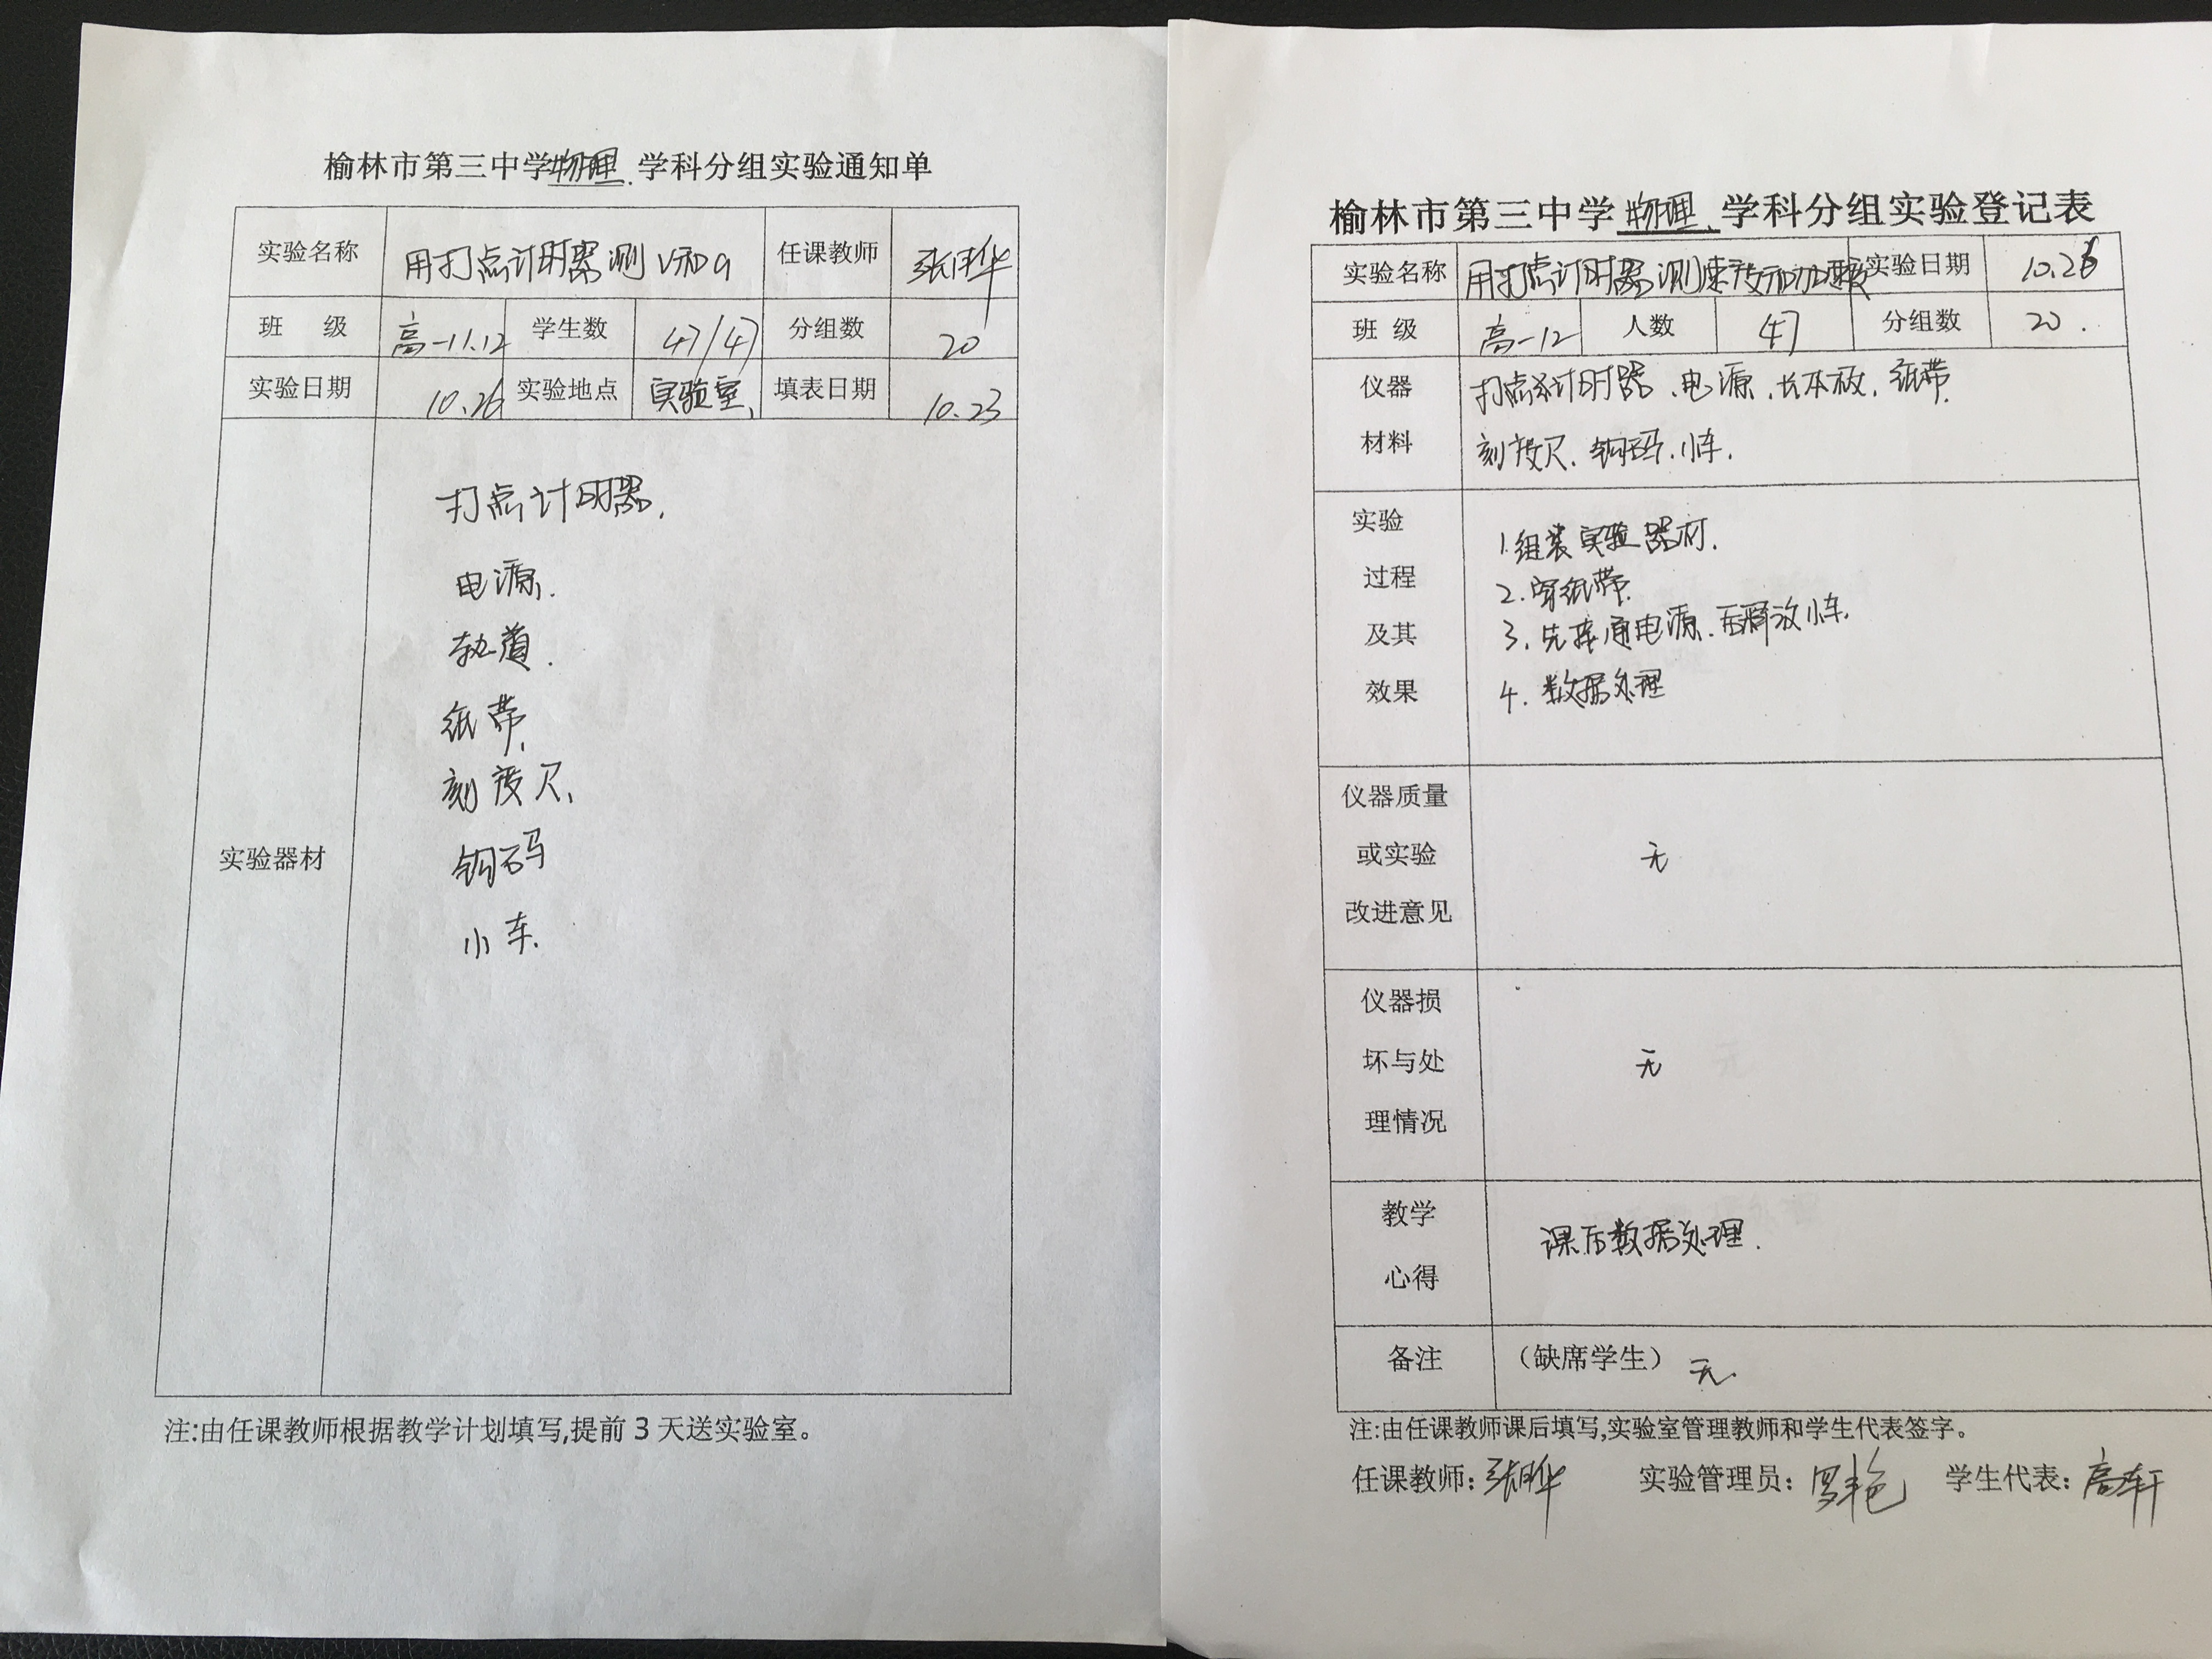 榆林市第三中学物理学科分组实验通知单
实验名称 用打点计时器测v和a 任课教师
班 级 高一11.12 学生数 47/47 分组数 20
实验日期 10.26 实验地点 实验室、 填表日期 10.23
实验器材
打点计时器、
电源、
轨道、
纸带、
刻度尺、
钩码
小车、
注:由任课教师根据教学计划填写,提前3天送实验室。
榆林市第三中学物理、学科分组实验登记表
实验名称 用打点计时器测速度和加速度 实验日期 10.26
班 级 高一12 人数 47 分组数 20.
仪器 材料
打点计时器、电源、长木板、纸带、
刻度尺、钩码、小车、
实验 过程 及其 效果
1.组装实验器材、
2.穿纸带、
3、先接通电源、后释放小车、
4、数据处理
仪器质量 或实验 改进意见 无
仪器损 坏与处 理情况 无
教学 心得 课后数据处理、
备注 (缺席学生) 无、
注:由任课教师课后填写,实验室管理教师和学生代表签字。
任课教师: 实验管理员: 学生代表:高轩